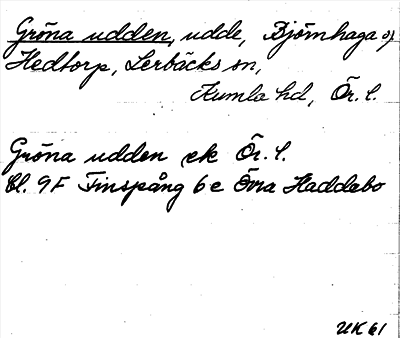 Gröna udden, udde, Björnhaga o)
Hedtorp, Lerbäcks sn,
Kumla hd, Ör. l.
Gröna udden ek Ör. l.
Bl. 9F Finspång 6e Övra Haddebo
UK 61